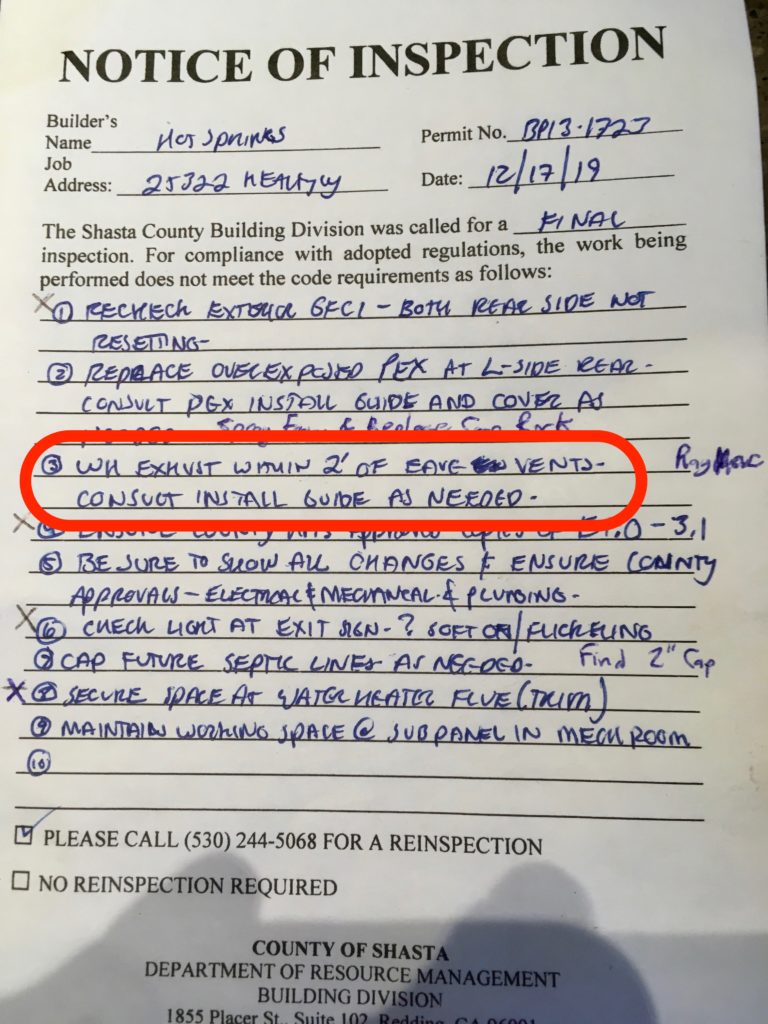 NOTICE OF INSPECTION
Builder's
Name HOT SPRINGS
Permit No. BP13-1723
Job
Address: 25322
Date: 12/17/19
The Shasta County Building Division was called for a FINAL
inspection. For compliance with adopted regulations, the work being
performed does not meet the code requirements as follows:
X ① RECHECH EXTERIOR GFCI - BOTH REAR SIDE NOT
RESETTING-
② REPLACE OVEREXPOSED PEX AT L-SIDE REAR-
CONSULT PEX INSTALL GUIDE AND COVER AS
③ WH EXHUST WITHIN 2' OF EAVE VENTS-
CONSULT INSTALL GUIDE AS NEEDED-
- 3.1
⑤ BE SURE TO SHOW ALL CHANGES & ENSURE COUNTY
APPROVALS - ELECTRICAL & MECHANICAL & PLUMBING-
X ⑥ CHECK LIGHT AT EXIT SIGN-? SOFT OR/FLICKELING
⑦ CAP FUTURE SEPTIC LINES AS NEEDED- Find 2" Cap
X ⑧ SECURE SPACE AT WATER HEATER FLUE (TRIM)
⑨ MAINTAIN WORKING SPACE @ SUBPANEL IN MECH ROOM
⑩
PLEASE CALL (530) 244-5068 FOR A REINSPECTION
NO REINSPECTION REQUIRED
COUNTY OF SHASTA
DEPARTMENT OF RESOURCE MANAGEMENT
BUILDING DIVISION
1855 Placer St., Suite 102, Redding, CA 96001